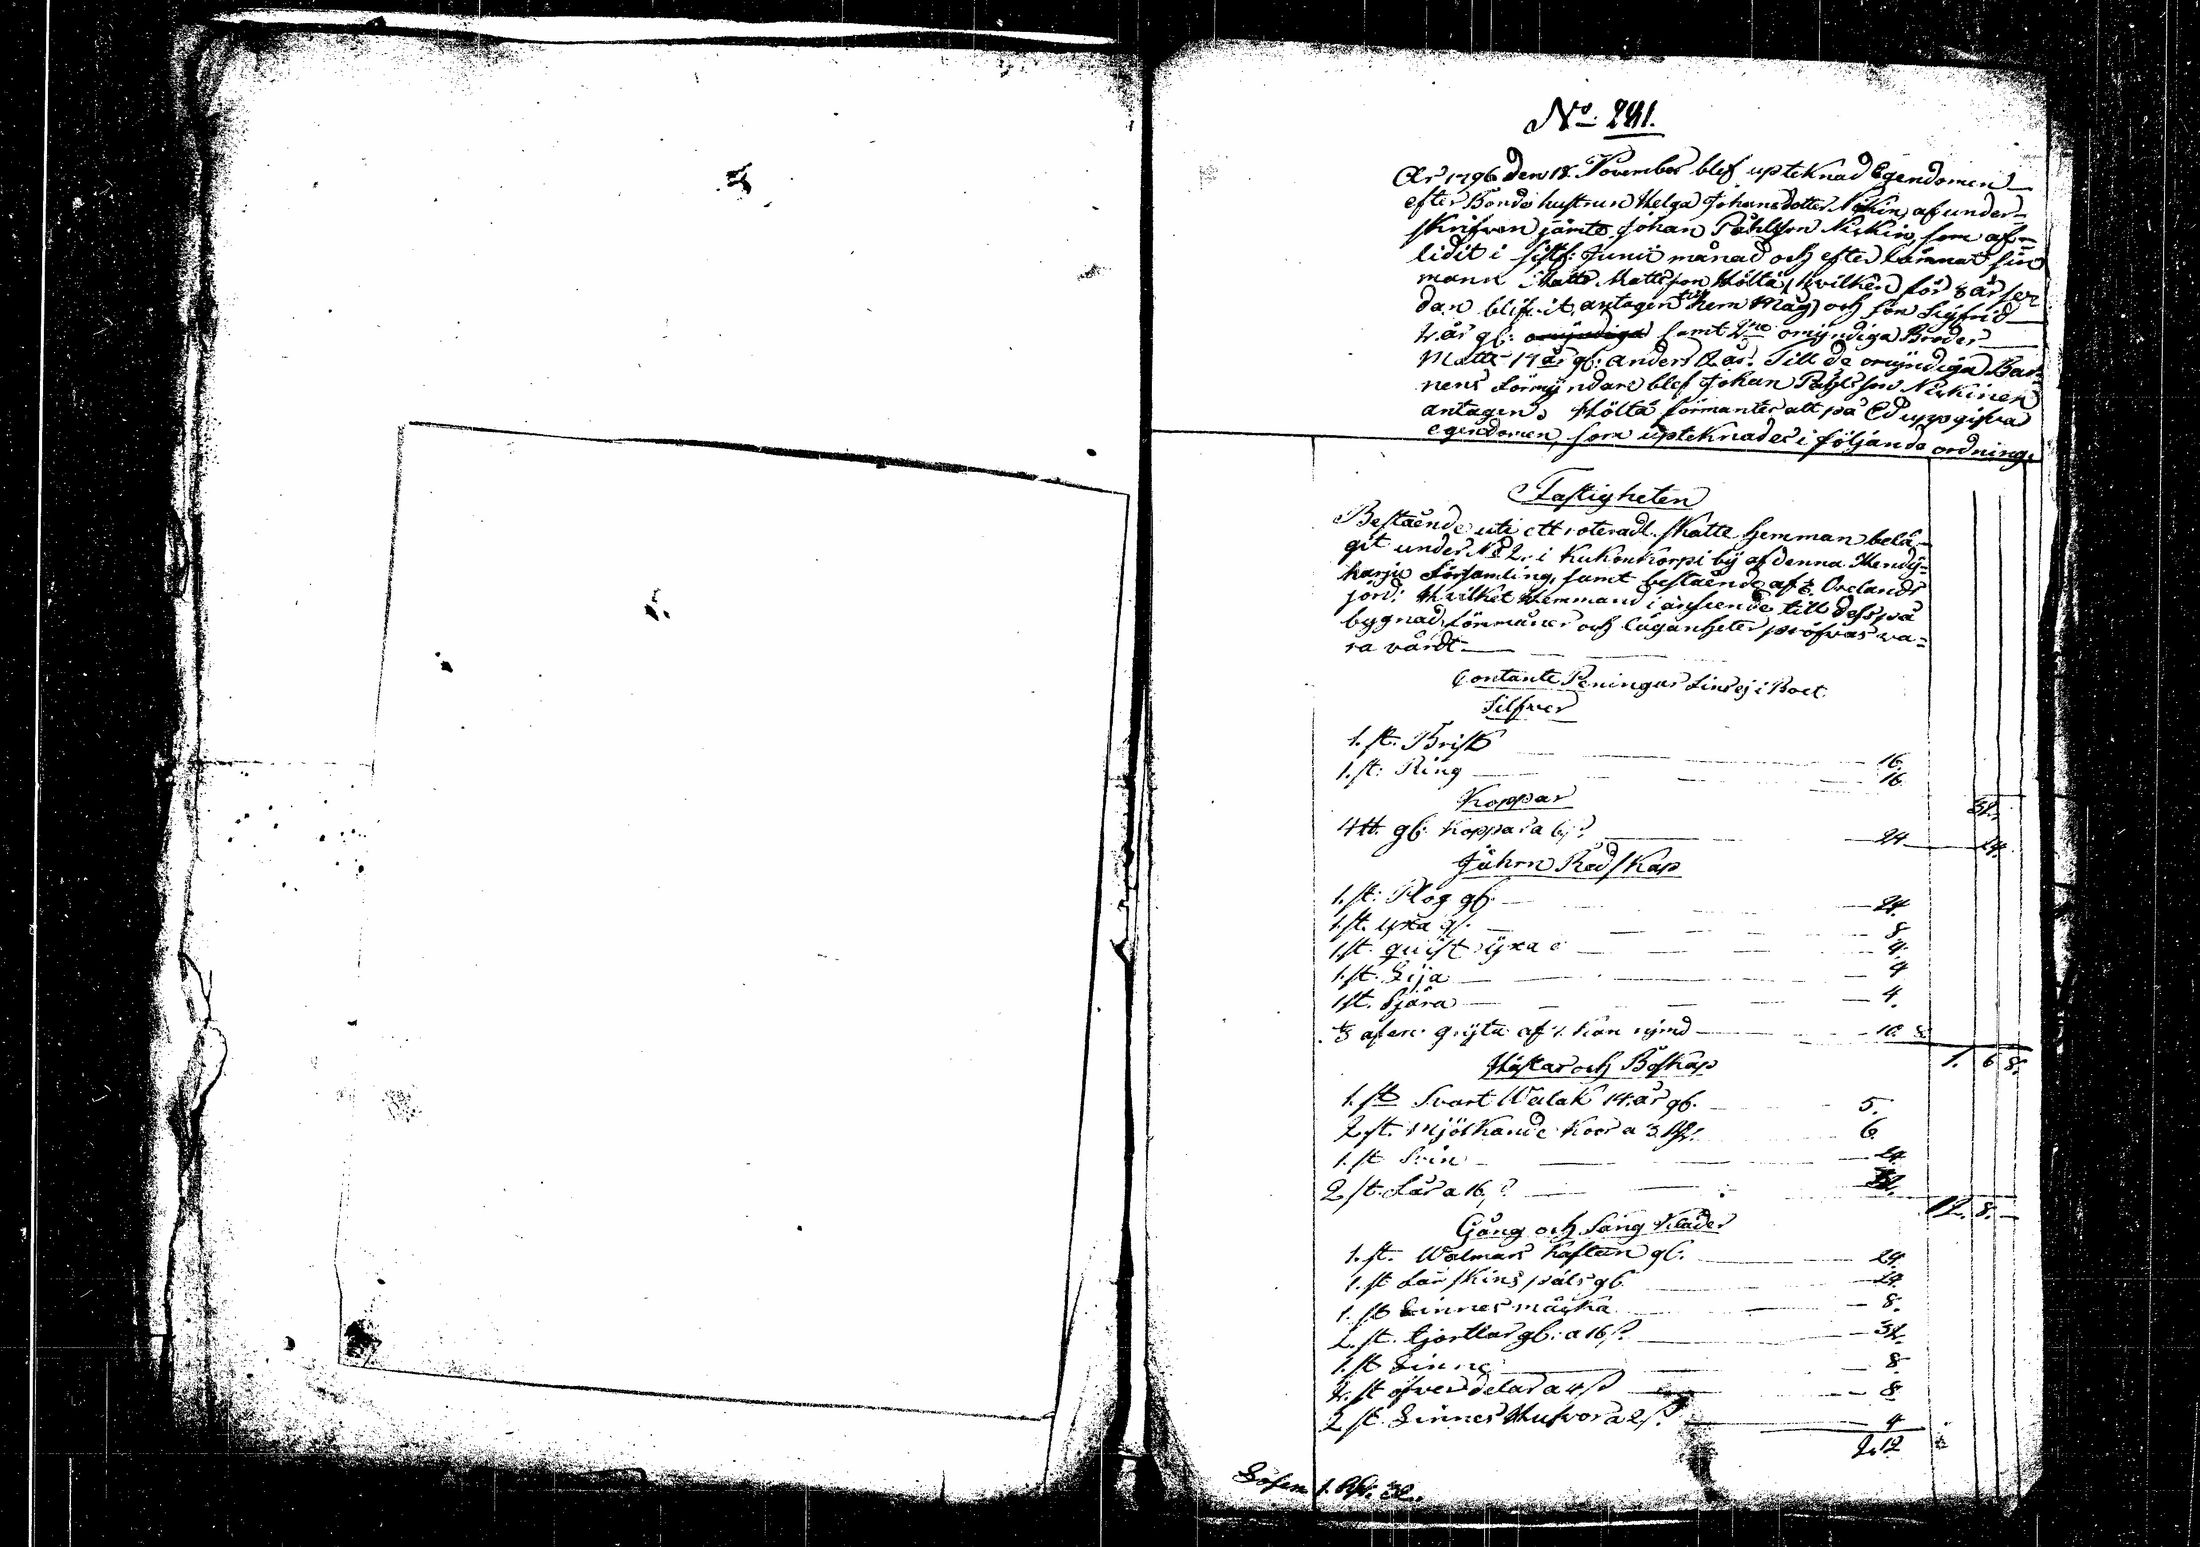 No. 241.
År 1796 den 18. November blef upteknad Egendomen
efter Bonde hustrun Helga Johansdotter Niskin, af under-
skrifven jämte Johan Påhlsson Niskin, som af-
lidit i sistl: Junii månad och efter lämnat sin
mann Matts Mattsson Höltä, hvilken för 8 år se-
dan blifvit antagen till hem Måg, och son Sigfrid
2. år gl: omÿndiga samt 2ne omÿndiga Bröder
Matts 17 år gl: Anders 12 år. Till de omÿndiga Bar-
nens Förmÿndare blef Johan Påhlsson Niskinen
antagen. Höltä förmantes att på Ed uppgifva
egendomen, som upteknades i följande ordning.
Fastigheten
Bestående uti ett roteradt Skatte hemman belä-
git under No 2. i Kukonkorpi bÿ af denna
harju Församling, samt bestående af Örelands
jord: Hvilket Hemmand i anseende till dess på
bygnad, förmåner och lägenheter pröfvas va-
ra värdt
Contante Peningar fins ej i Boet.
Silfver
1. st. Brisk 16.
1. st: Ring 16.
32.
Koppar
4 ℔. gl: Koppar a 6 s. 24 24.
Jährn Redskap
1. st: Plog gl. 24.
1. st. yxa gl. 8.
1 st. quist yxa 4.
1. st. Lija 4
1 st. Sjära 4.
⅓ af en grÿta af 1. Kan rÿmd 10. 8.
1. 6 8.
Hästar och Boskap
1. st. Svart Walak 14. år gl. 5.
2 st. Mjölkande Koor a 3 Rd. 6.
1. st Svin 24.
2 st. Får a 16 s. 32.
12. 8. -
Gång och Säng Kläder
1. st. Walmars Kaftan gl. 24.
1. st Får skins päls gl. 24.
1. st Linnes 8.
2. st. kjortlar gl: a 16 s. 32.
1. st Linne 8.
2. st öfverdelar a 4 s 8
2 st. Linnes Hufvor a 2 s. 4
2.12
Lösen 1. Rd. 32.